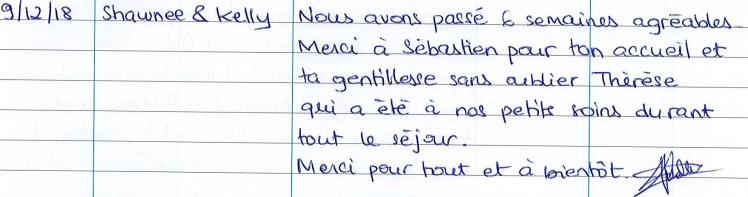 9/12/18 Shawnee & Kelly Nous avons passé 6 semaines agréables
Merci à Sébastien pour ton accueil et
ta gentillesse sans oublier Thérèse
qui a été à nos petits soins durant
tout le séjour.
Merci pour tout et à bientôt.